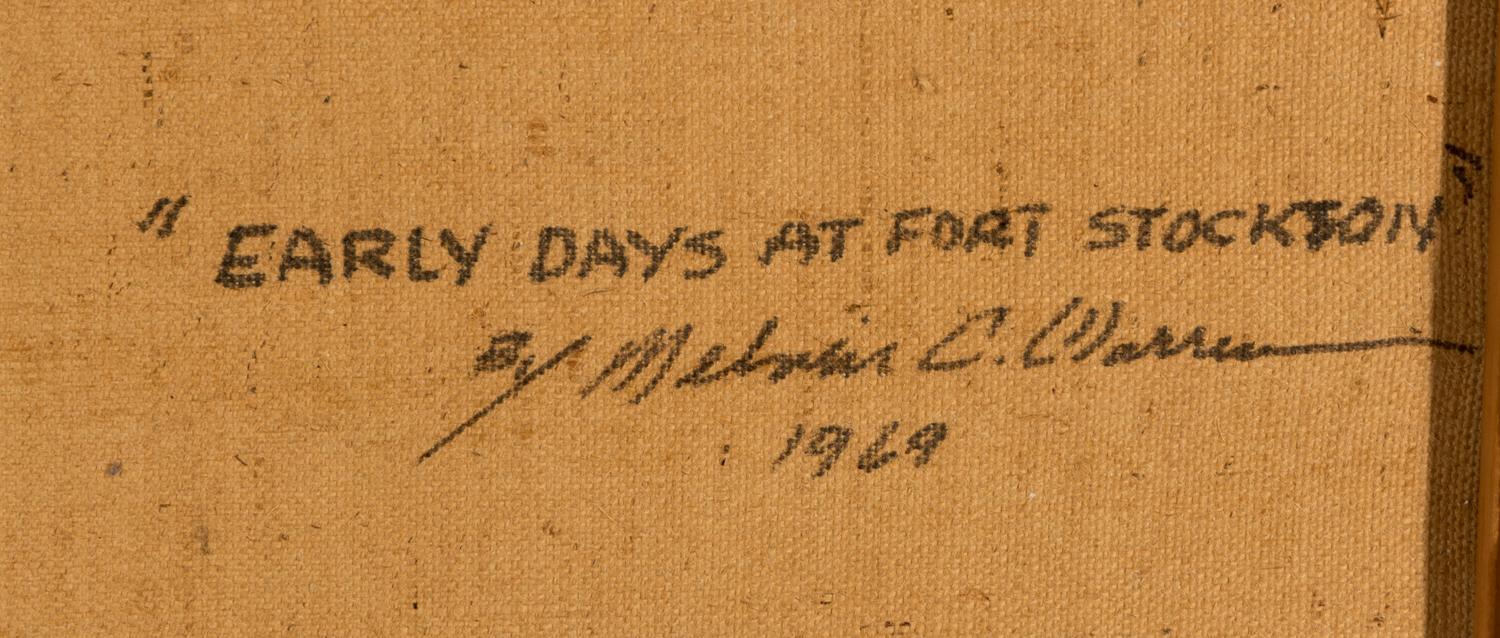 "EARLY DAYS AT FORT STOCKTON"
By Melvin C. Warren
1969